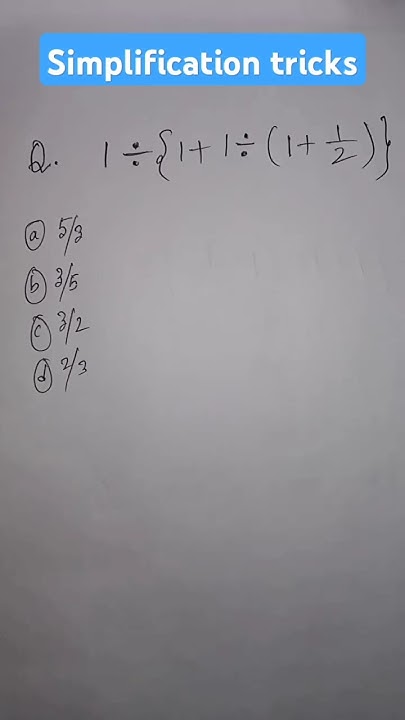 Simplification tricks
Q. 1 ÷ {1 + 1 ÷ (1 + 1/2)}
(a) 5/3
(b) 3/5
(c) 3/2
(d) 2/3